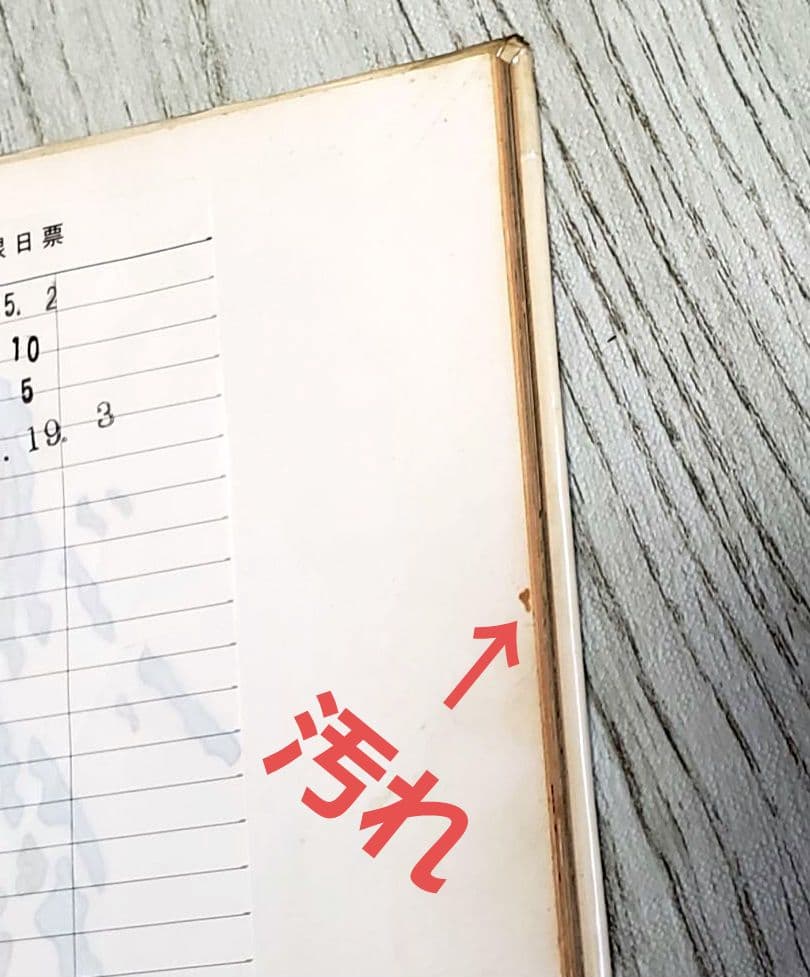 日票
5. 2
10
5
. 19. 3
汚れ